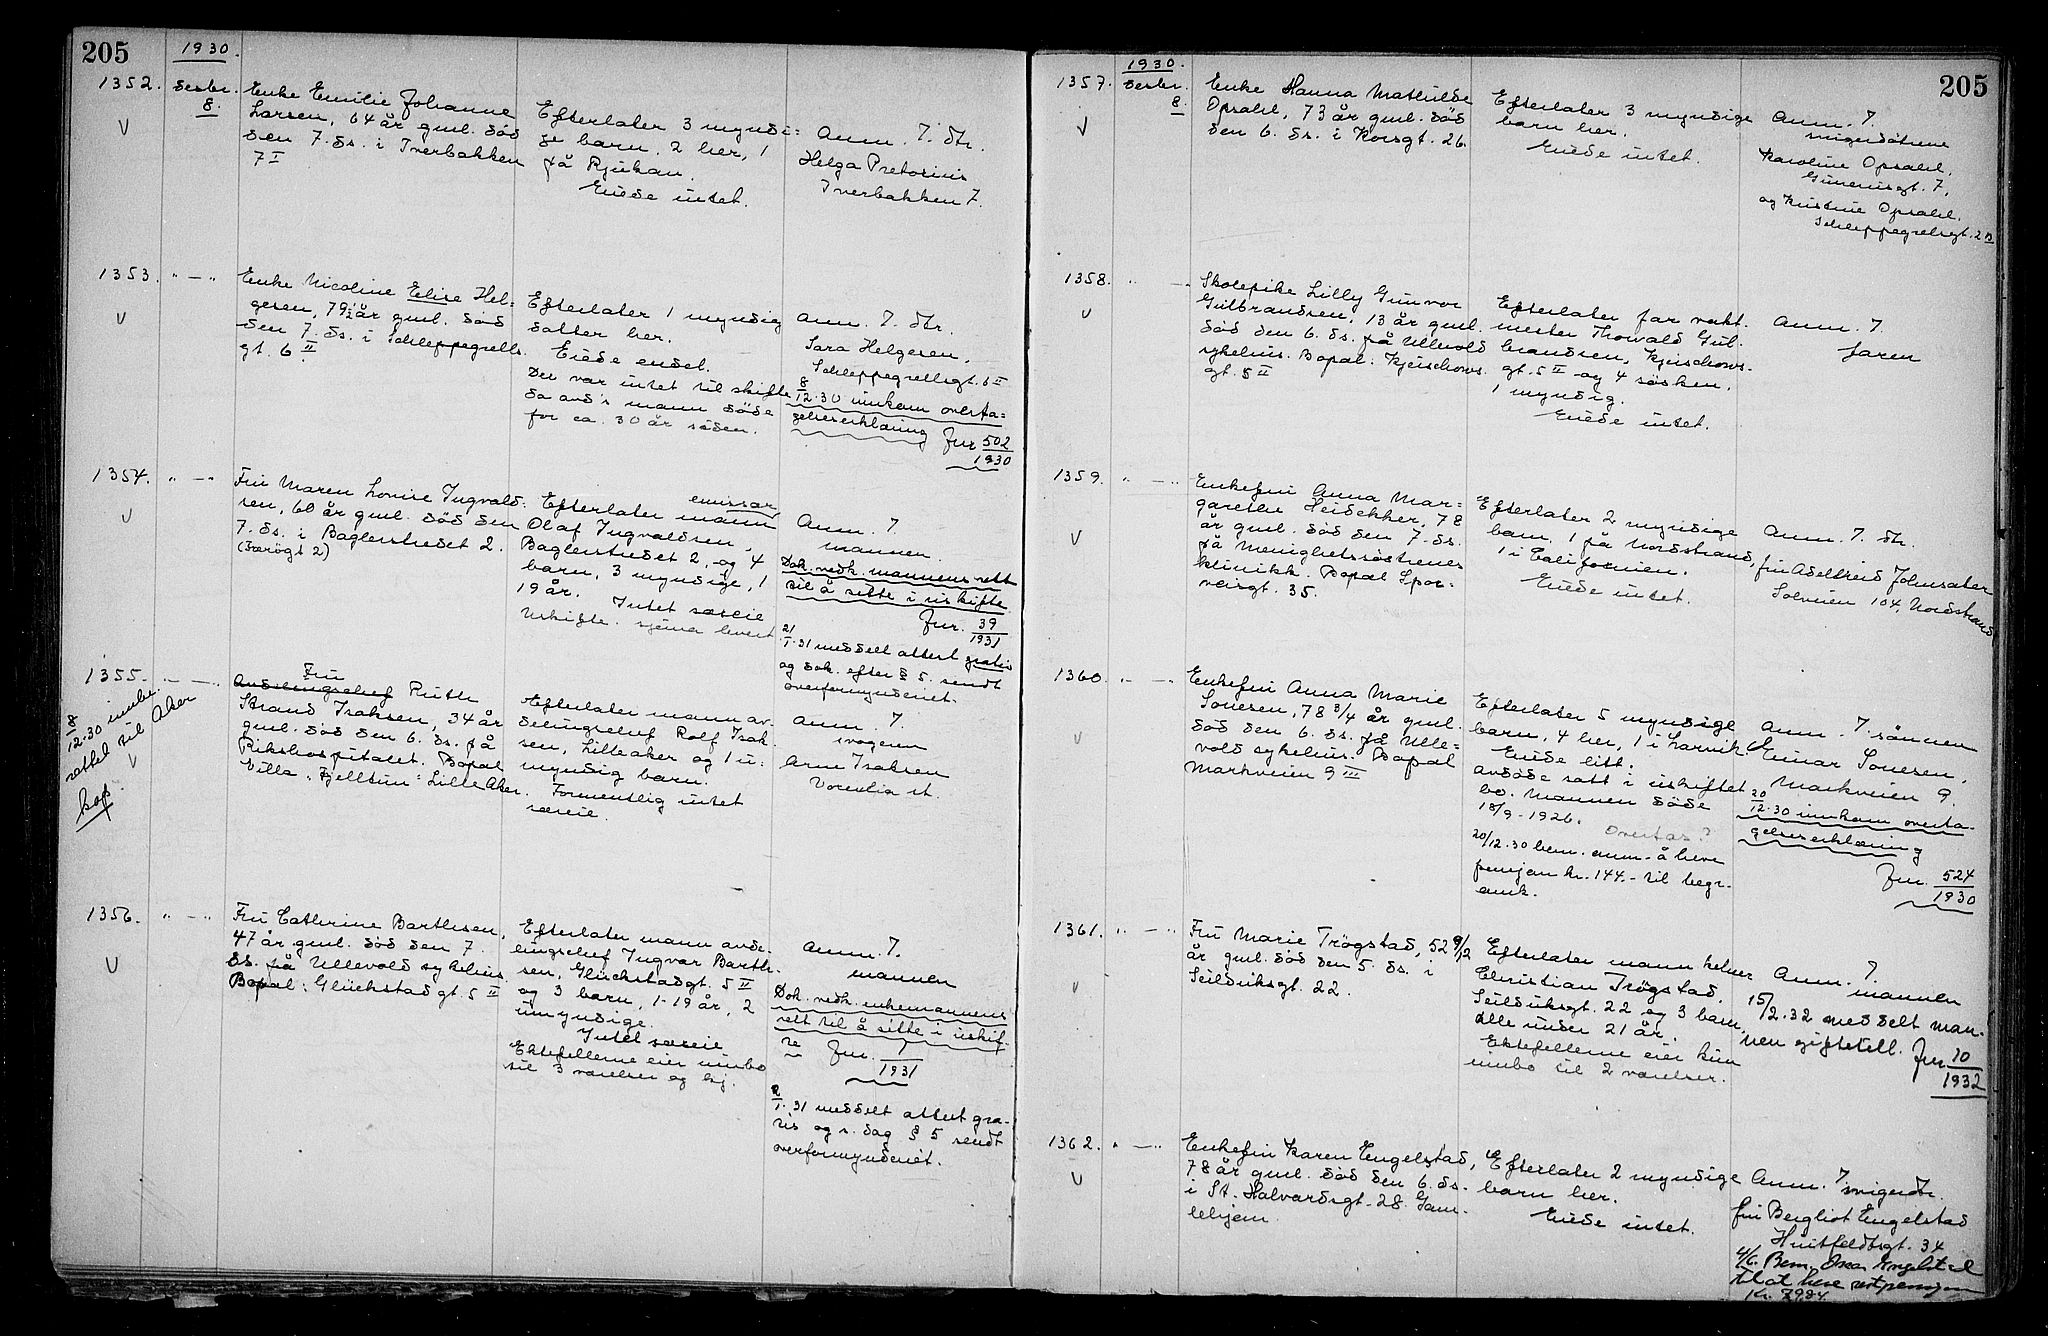 205
1930.
1352.
Desbr.
8.
Enke Emilie Johanne
Larsen, 64 år gml. död
den 7. ds. i Tverbakken
7 I
Efterlater 3 myndi=
ge barn, 2 her, 1
på Rjukan.
Eiede intet.
Anm. 7. dtr.
Helga Pretorius
Tverbakken 7.
1353.
" — "
Enke Nicoline Elise Hel=
gesen, 79½ år gml. död
den 7. ds. i Schleppegrells
gt. 6 II
Efterlater 1 myndig
datter her.
Eiede endel.
Der var intet til skifte
da avd's mann döde
for ca. 30 år siden.
Anm. 7. dtr.
Sara Helgesen,
Schleppegrellsgt. 6 II
8/12.30 innkom overta=
gelseserklæring Jnr 502
1930
1354.
" — "
Fru Maren Lovise Ingvald=
sen, 60 år gml. död den
7. ds. i Baglerstredet 2.
Efterlater mann emissær
Olaf Ingvaldsen,
Baglerstredet 2, og 4
barn, 3 myndige, 1
19 år. Intet særeie
Uskifte. skjema levert
Anm. 7.
mannen.
Dok. vedk. mannens rett
til å sitte i uskifte
Jnr. 39
1931
21/1.31 meddelt attest gratis
og dok. efter § 5. sendt
overformynderiet.
1355.
" — "
8/12.30 innber.
rettet til Aker
Fru
Avdelingschef Ruth
Strand Isaksen, 34 år
gml. död den 6. ds. på
Rikshospitalet. Bopal
Villa "Fjelltun" Lilleaker.
Efterlater mann av=
delingschef Rolf Isak=
sen, Lilleaker og 1 u=
myndig barn.
Formentlig intet
særeie.
Anm. 7.
svogeren
Arne Isaksen
1356.
" — "
Fru Cathrine Barthsen,
47 år gml. död den 7.
ds. på Ullevold sykehus.
Bopal: Glückstadgt. 5 II
Efterlater mann avde=
lingschef Ingvar Barth=
sen, Glückstadgt. 5 II
og 3 barn, 1-19 år, 2
umyndige.
Intet særeie
Ektefellerne eier innbo
til 3 værelser og kj.
Anm. 7.
mannen
Dok. vedk. enkemannens
rett til å sitte i uskif=
te Jnr. 7
1931
2/1.31 meddelt attest gra=
tis og s. dag § 5 sendt
overformynderiet.
205
1930.
1357.
Desbr.
8.
Enke Hanna Mathilde
Opsahl, 73 år gml. död
den 6. ds. i Korsgt. 26.
Efterlater 3 myndige
barn her.
Eiede intet.
Anm. 7.
svigerdötrene
Karoline Opsahl,
Grünersgt. 7,
og Kristine Opsahl,
Schleppegrellsgt. 2 III
1358.
" — "
Skolepike Lilly Gunvor
Gulbrandsen, 13 år gml.
död den 6. ds. på Ullevold
sykehus. Bopal: Kjerschows
gt. 5 II
Efterlater far vakt=
mester Thorvald Gul=
brandsen, Kjerschows=
gt. 5 II og 4 sösken,
1 myndig.
Eiede intet.
Anm. 7.
faren
1359.
" — "
Enkefru Anna Mar=
garethe Heidekker, 78
år gml. död den 7. ds.
på Menighetssöstrenes
klinikk. Bopal Spor=
veisgt. 35.
Efterlater 2 myndige
barn, 1 på Nordstrand,
1 i Californien.
Eiede intet.
Anm. 7. dtr.
fru Adelheid Johnsæter
Solveien 104, Nordstrand
1360.
" — "
Enkefru Anna Marie
Sonesen, 78 3/4 år gml.
död den 6. ds. på Ulle=
vold sykehus. Bopal
Markveien 9 III
Efterlater 5 myndige
barn, 4 her, 1 i Larvik
Eiede litt.
avdöde satt i uskiftet
bo. Mannen döde
18/9-1926.
Overtas?
20/12.30 bem. anm. å heve
pensjon kr. 144.- til begr.
omk.
Anm. 7. sönnen
Einar Sonesen,
Markveien 9.
20/12.30 innkom overta=
gelseserklæring
Jnr. 524
1930
1361.
" — "
Fru Marie Trögstad, 52 9/12
år gml. död den 5. ds. i
Seilduksgt. 22.
Efterlater mann kelner
Christian Trögstad,
Seilduksgt. 22 og 3 barn,
alle under 21 år.
Ektefellerne eier kun
innbo til 2 værelser.
Anm. 7.
mannen
15/2.32 meddelt man=
nen giftetill. Jnr 10
1932
1362.
" — "
Enkefru Karen Engelstad,
78 år gml. död den 6. ds.
i St. Halvardsgt. 28. Gam=
lehjem
Efterlater 2 myndige
barn her.
Eiede intet.
Anm. 7. svigerdtr.
fru Bergliot Engelstad
Huitfeldtsgt. 34
4/6. Bem. Engelstad
til at heve restpensjon
Kr. 79.84